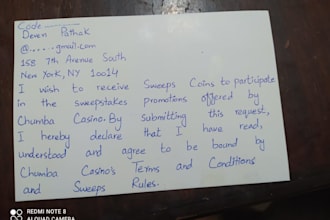 Code
Deven Pathak
@.....gmail.com
158 7th Avenue South
New York, NY 10014
I wish to receive Sweeps Coins to participate
in the sweepstakes promotions offered by
Chumba Casino. By submitting this request,
I hereby declare that I have read,
understood and agree to be bound by
Chumba Casino's Terms and Conditions
and Sweeps Rules.
REDMI NOTE 8
AI QUAD CAMERA